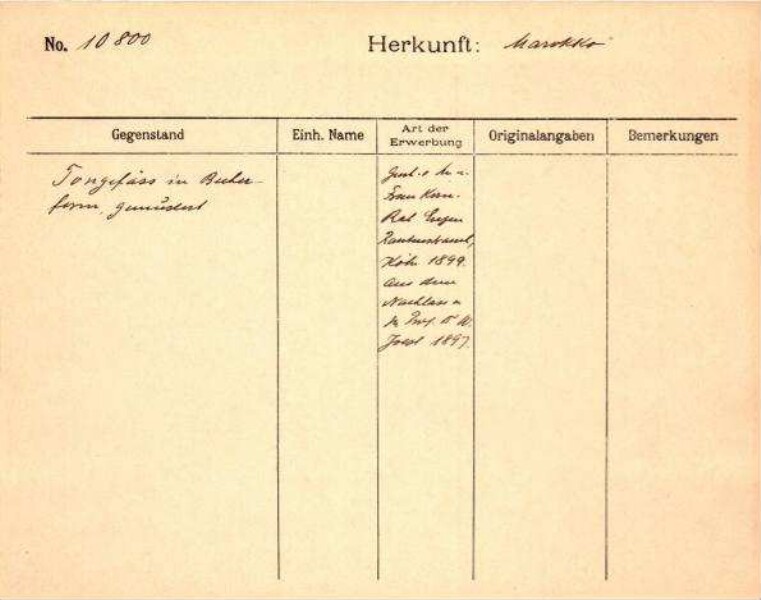 No. 10800
Herkunft: Marokko
Gegenstand
Einh. Name
Art der Erwerbung
Originalangaben
Bemerkungen
Tongefäss in Becher-
form, gemustert
Frau Kom.
Rat Eugen
Rautenstrauch,
Köln 1899.
Aus dem
Nachlass
Prof. Dr W.
Joest 1897.